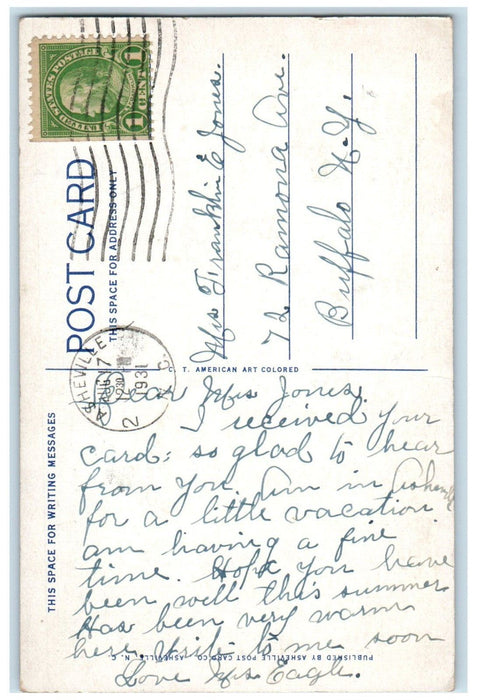 UNITED STATES POSTAGE
1 CENT 1
POST CARD
THIS SPACE FOR ADDRESS ONLY
Mrs Franklin E Jones.
72 Ramona Ave.
Buffalo N.Y.
ASHEVILLE
AUG 7
2
1931
N.C.
C. T. AMERICAN ART COLORED
THIS SPACE FOR WRITING MESSAGES
Dear Mrs Jones.
I received your
card: so glad to hear
from you. Am in Asheville
for a little vacation
am having a fine
time. Hope you have
been well this summer
Has been very warm
here. Write to me soon
Love Mrs Eagle.
PUBLISHED BY ASHEVILLE POST CARD CO., ASHEVILLE, N. C.